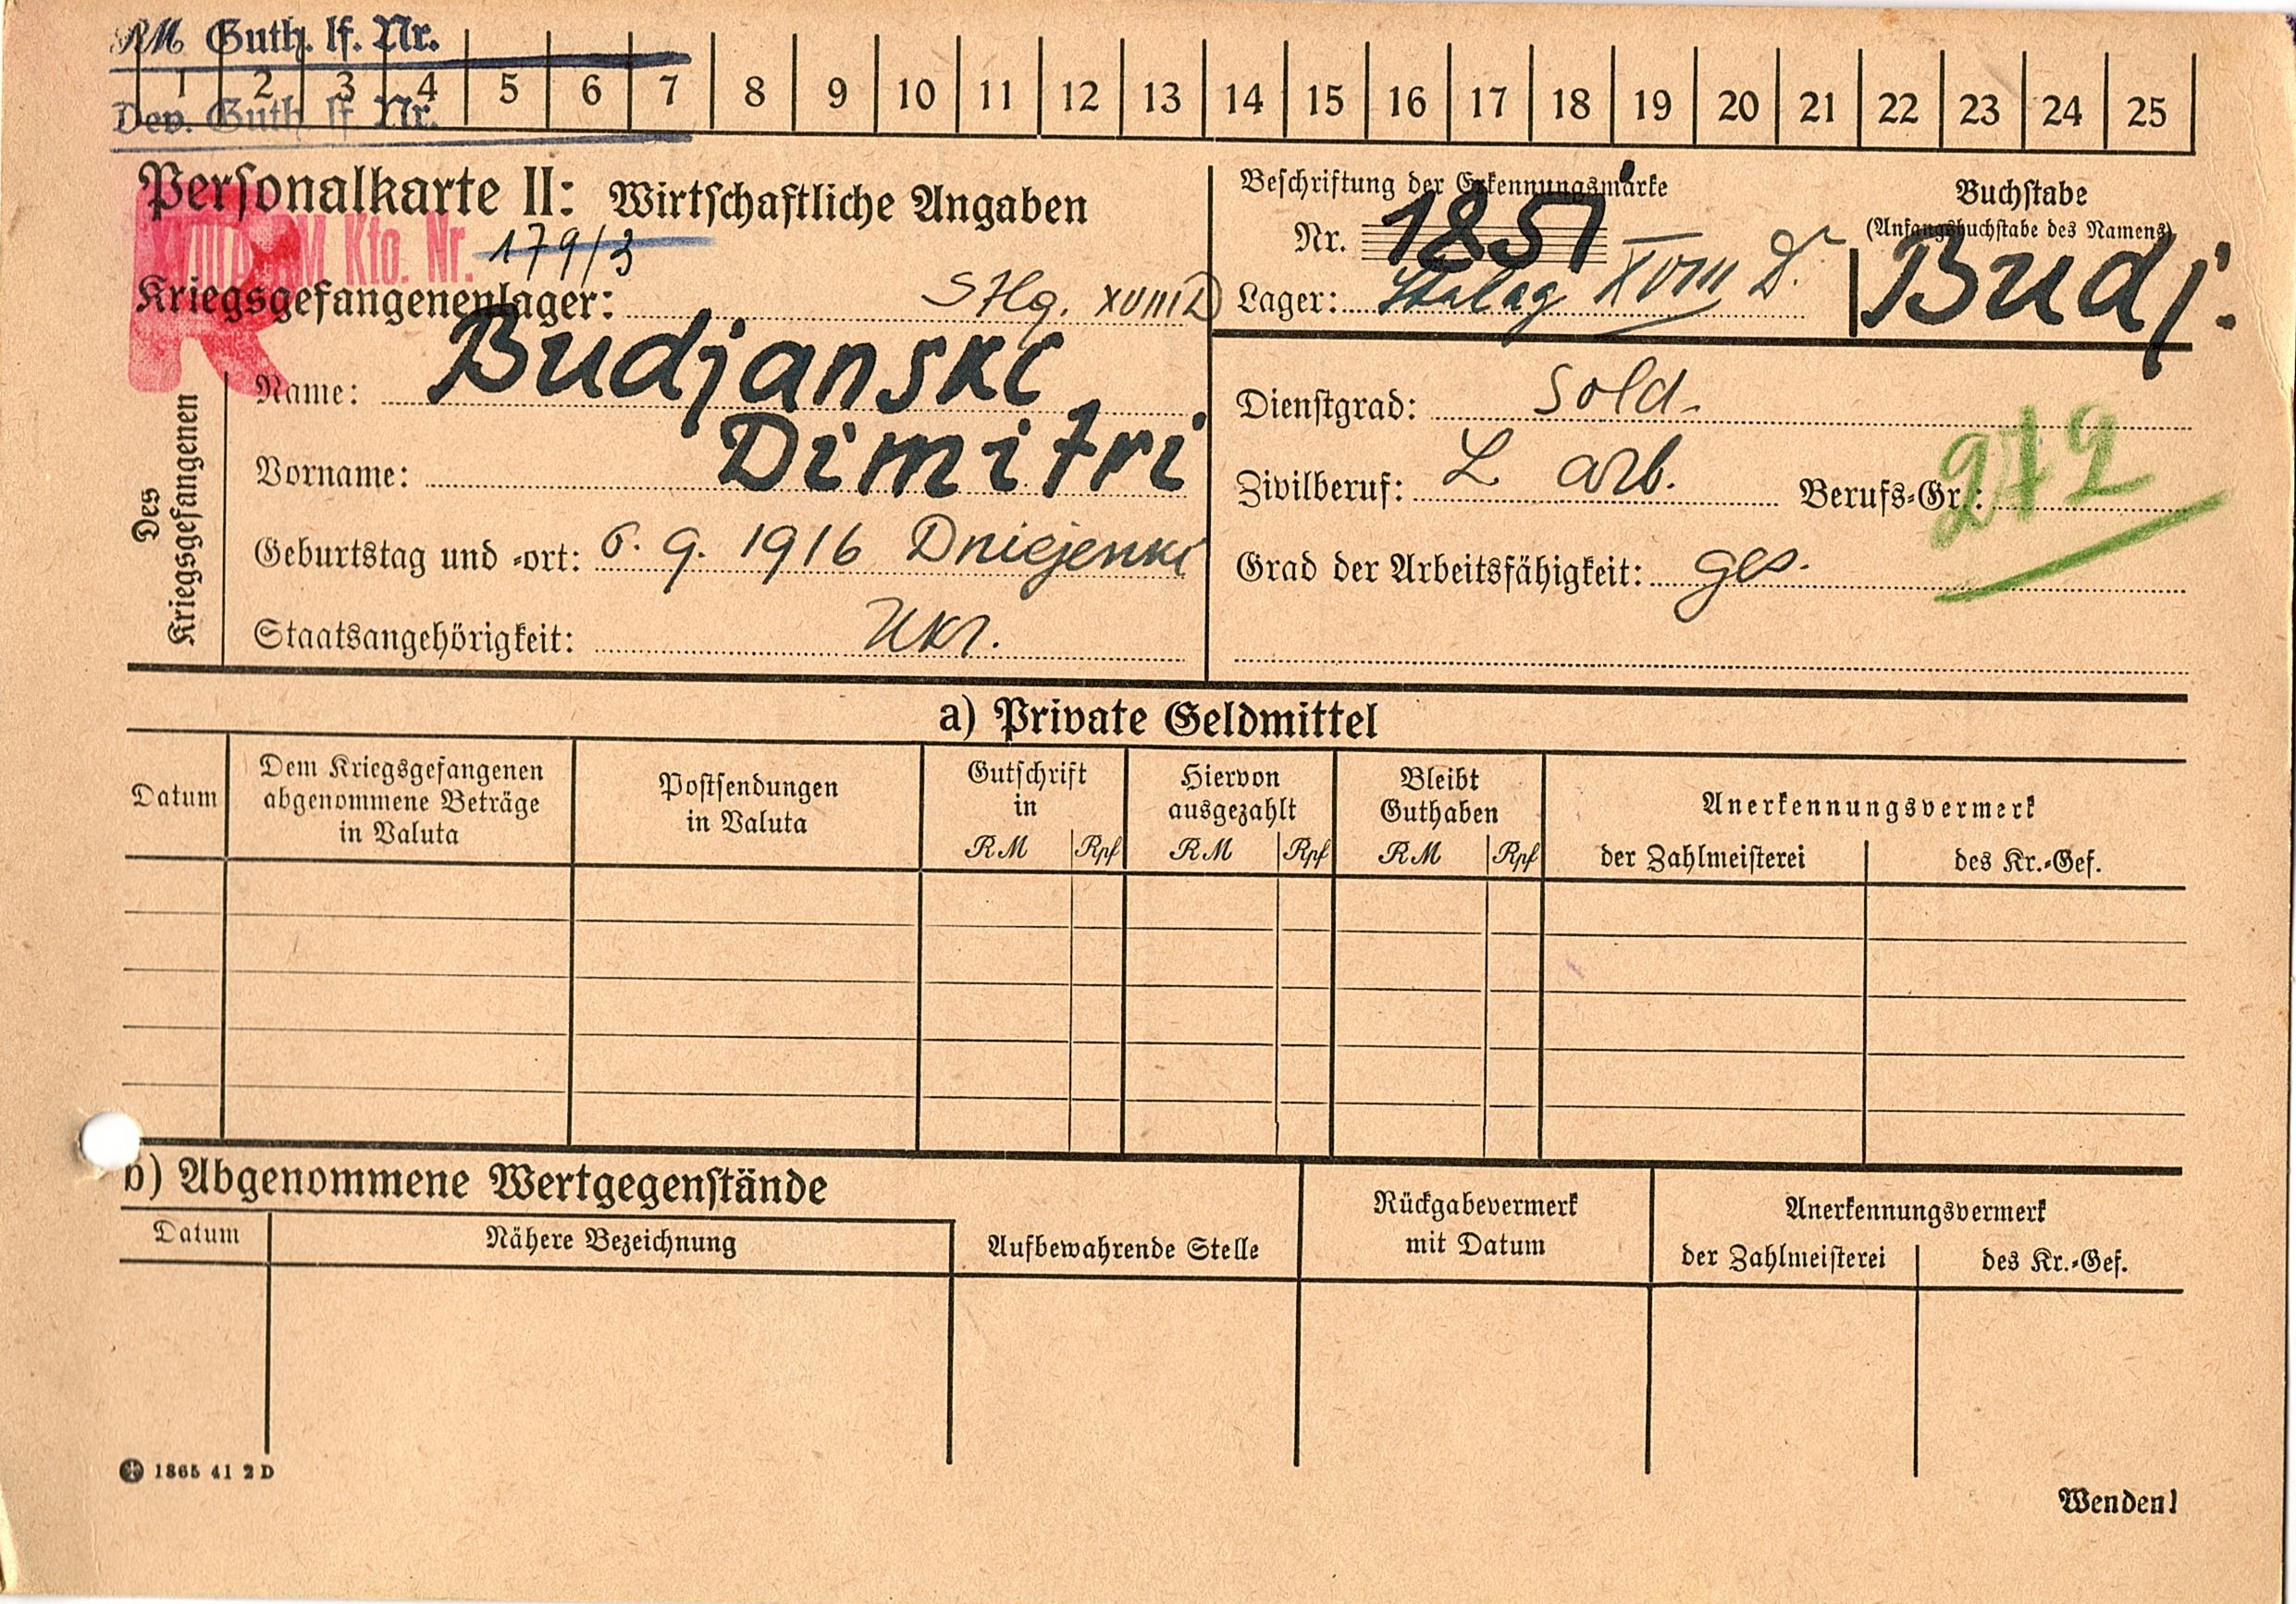 RM Guth. lf. Nr.
1 2 3 4 5 6 7 8 9 10 11 12 13 14 15 16 17 18 19 20 21 22 23 24 25
Dev. Guth. lf. Nr.
Personalkarte II: Wirtschaftliche Angaben
RM Kto. Nr. 179/3
Kriegsgefangenenlager: Stlg. XVIII D
Beschriftung der Erkennungsmarke
Nr. 1851
Lager: Stalag XVIII D.
Buchstabe
(Anfangsbuchstabe des Namens)
Budj.
Des Kriegsgefangenen
Name: Budjanski
Vorname: Dimitri
Geburtstag und -ort: 6. 9. 1916
Staatsangehörigkeit: Ukr.
Dienstgrad: Sold.
Zivilberuf: L arb. Berufs-Gr.: 272
Grad der Arbeitsfähigkeit: ges.
a) Private Geldmittel
Datum
Dem Kriegsgefangenen
abgenommene Beträge
in Valuta
Postsendungen
in Valuta
Gutschrift
in
RM Rpf
Hiervon
ausgezahlt
RM Rpf
Bleibt
Guthaben
RM Rpf
Anerkennungsvermerk
der Zahlmeisterei des Kr.-Gef.
b) Abgenommene Wertgegenstände
Datum Nähere Bezeichnung
Aufbewahrende Stelle
Rückgabevermerk
mit Datum
Anerkennungsvermerk
der Zahlmeisterei des Kr.-Gef.
1865 41 2 D
Wenden!